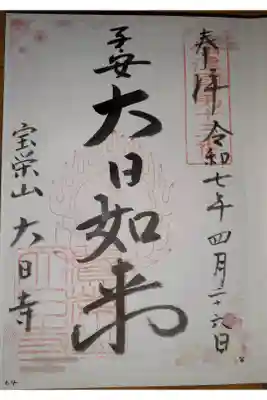 奉拝
令和七年四月二十六日
子安
大日如来
宝栄山 大日寺